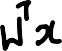 wᵀx